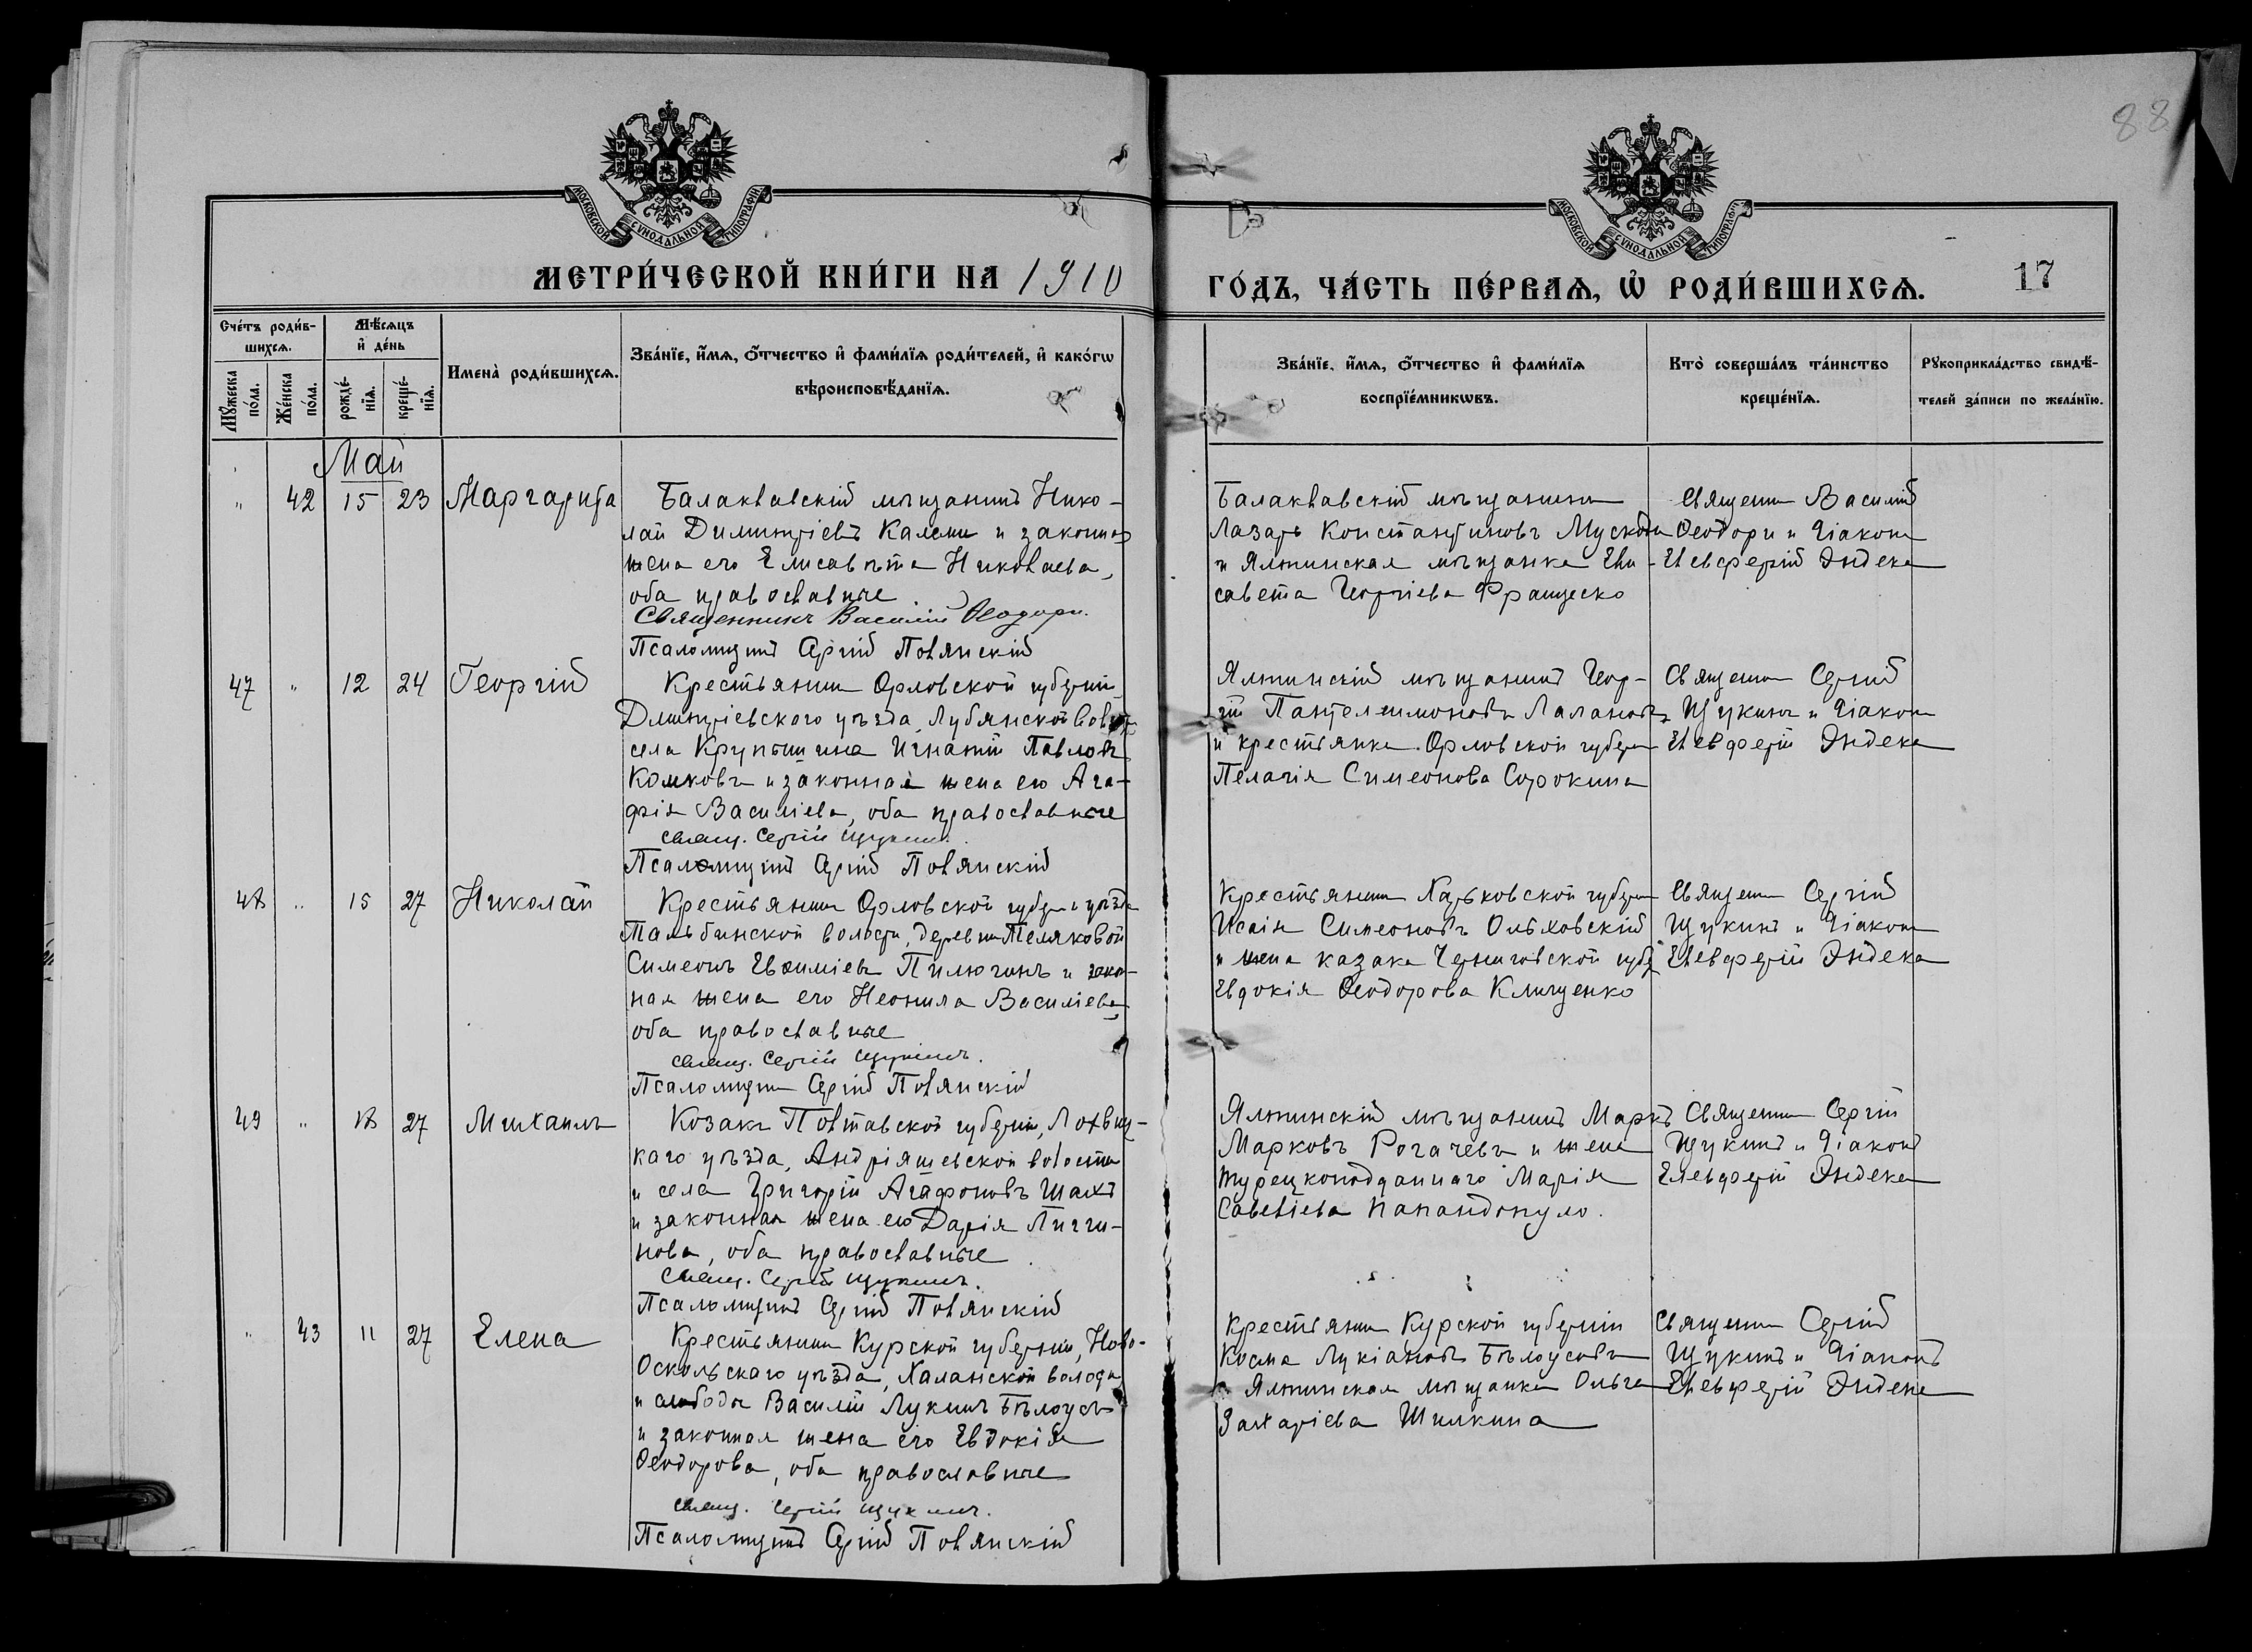 88
МОСКОВСКОЙ СУНОДАЛЬНОЙ ТИПОГРАФІИ
МОСКОВСКОЙ СУНОДАЛЬНОЙ ТИПОГРАФІИ
МЕТРИ́ЧЕСКОЙ КНИ́ГИ НА 1910
ГО́ДЪ, ЧА́СТЬ ПЕ́РВАѦ, Ѡ҆ РОДИ́ВШИХСѦ.
17
Сче́тъ роди́в-
шихсѧ.
Мѣ́сѧцъ
и҆ де́нь
Мꙋ́жеска
по́ла.
Же́нска
по́ла.
рожде́-
нїѧ.
креще́-
нїѧ.
Имена̀ роди́вшихсѧ.
Зва́нїе, и҆́мѧ, ѻ҆́тчество и҆ фами́лїѧ роди́телей, и҆ како́гѡ
вѣроисповѣ́данїѧ.
Зва́нїе, и҆́мѧ, ѻ҆́тчество и҆ фами́лїѧ
воспрїе́мникѡвъ.
Кто̀ соверша́лъ та́инство
креще́нїѧ.
Рꙋкоприкла́дство свидѣ́-
телей за́писи по жела́нїю.
Май
" 42 15 23 Маргарита
Балаклавскій мѣщанинъ Нико-
лай Димитріевъ и законная
жена его Елисавета Николаева,
оба православные
Священникъ Василій Ѳеодори.
Псаломщикъ Сергій Полянскій
Балаклавскій мѣщанинъ
Лазарь Константиновъ
и Ялтинская мѣщанка Ели-
савета Георгіева Франческо
Священ Василій
Ѳеодори и Діакон
Елевферій Эндека
47 " 12 24 Георгій
Крестьянин Орловской губерніи
Дмитріевского уѣзда, Лубянской волости
села Крупышина Игнатій Павловъ
Комковъ и законная жена его Ага-
фія Василіева, оба православные
Свящ. Сергій Щукинъ.
Псаломщикъ Сергій Полянскій
Ялтинскій мѣщанинъ Геор-
гій Пантелеимоновъ
и крестьянка Орловской губерн
Пелагія Симеонова Сорокина
Священ Сергій
Щукинъ и Діакон
Елевферій Эндека
48 " 15 27 Николай
Крестьянин Орловской губерн и уѣзда
волости, деревни Теляковой
Симеонъ Евфиміевъ Пилюгинъ и закон-
ная жена его Неонила Василіева,
оба православные
Свящ. Сергій Щукинъ.
Псаломщик Сергій Полянскій
Крестьянин Харьковской губерн
Исаія Симеоновъ Ольховскій
и жена казака Черниговской губ
Евдокія Ѳеодорова Клищенко
Священ Сергій
Щукинъ и Діакон
Елевферій Эндека
49 " 18 27 Михаилъ
Козакъ Полтавской губерніи, Лохвиц-
каго уѣзда, Андріяшевской волости
и села Григорій Агафоновъ Шахъ
и законная жена его Дарія Логги-
нова, оба православные
Свящ. Сергій Щукинъ.
Псаломщикъ Сергій Полянскій
Ялтинскій мѣщанинъ Маркъ
Марковъ Рогачевъ и жена
турецкоподданнаго Марія
Савеліева Папандопуло.
Священ Сергій
Щукинъ и Діаконъ
Елевферій Эндека
" 43 11 27 Елена
Крестьянин Курской губерніи, Ново-
Оскольскаго уѣзда, Халанской волости
и слободы Василій Лукинъ Бѣлоусъ
и законная жена его Евдокія
Ѳеодорова, оба православные
Свящ. Сергій Щукинъ.
Псаломщикъ Сергій Полянскій
Крестьянин Курской губерніи
Косма Лукіановъ Бѣлоусовъ
и Ялтинская мѣщанка Ольга
Захаріева Шилкина
Священ Сергій
Щукинъ и Діаконъ
Елевферій Эндека